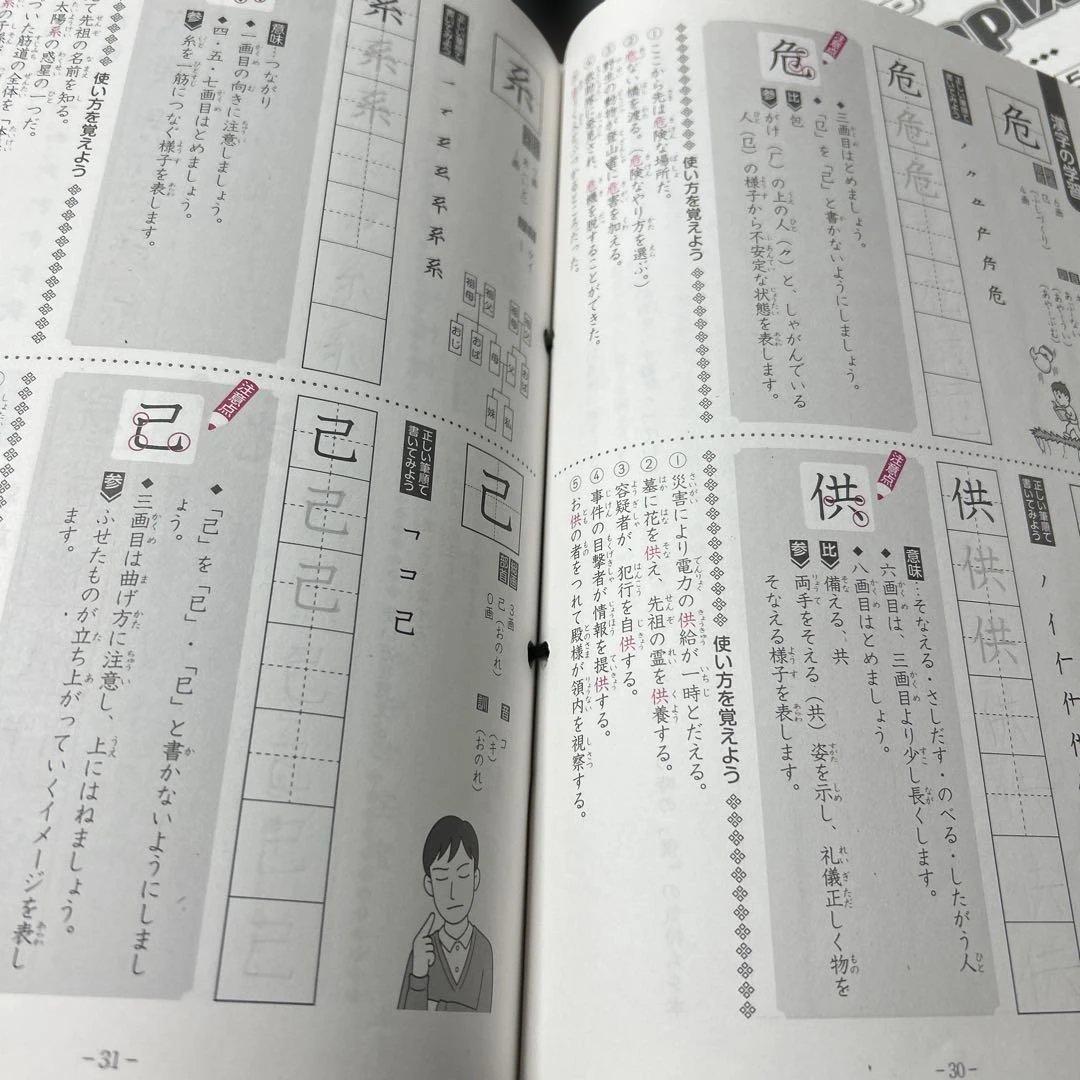 漢字の学習
危
危
危
危
正しい筆順で書いてみよう
危
注意点
◆三画目はとめましょう。
◆「㔾」を「己」と書かないようにしましょう。
比 包
参 がけ（厂）の上の人（⺈）と、しゃがんでいる
人（㔾）の様子から不安定な状態を表します。
使い方を覚えよう
①ここから先は危険な場所だ。
②危ない橋を渡る。（危険なやり方を選ぶ。）
③野生の動物が登山者に危害を加える。
供
供
供
正しい筆順で書いてみよう
供
注意点
意味…そなえる・さしだす・のべる・したがう人
◆六画目は、三画目より少し長くします。
◆八画目はとめましょう。
比 備える、共
参 両手をそえる（共）姿を示し、礼儀正しく物を
そなえる様子を表します。
使い方を覚えよう
①災害により電力の供給が一時とだえる。
②墓に花を供え、先祖の霊を供養する。
③容疑者が、犯行を自供する。
④事件の目撃者が情報を提供する。
⑤お供の者をつれて殿様が領内を視察する。
-30-
系
系
系
祖父
祖母
祖父
祖母
おば
父
母
おば
おじ
私
妹
意味…つながり
◆一画目の向きに注意しましょう。
◆四・五・七画目はとめましょう。
参 糸を一筋につなぐ様子を表します。
使い方を覚えよう
て先祖の名前を知る。
太陽系の惑星の一つだ。
己
総画 3画
部首 己（おのれ）
0画
音 コ
（キ）
訓 （おのれ）
正しい筆順で書いてみよう
己
己
己
己
己
注意点
◆「己」を「已」・「巳」と書かないようにしまし
ょう。
◆三画目は曲げ方に注意し、上にはねましょう。
参 ふせたものが立ち上がっていくイメージを表し
ます。
-31-